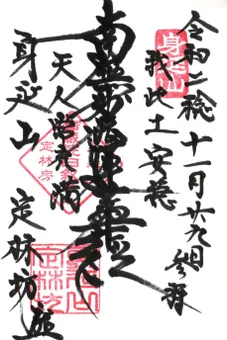 令和二稔 十一月廿九日 参拝
我此土安穏
南無妙法蓮華経
天人常充満
身延山 定林坊
身延山
定林房